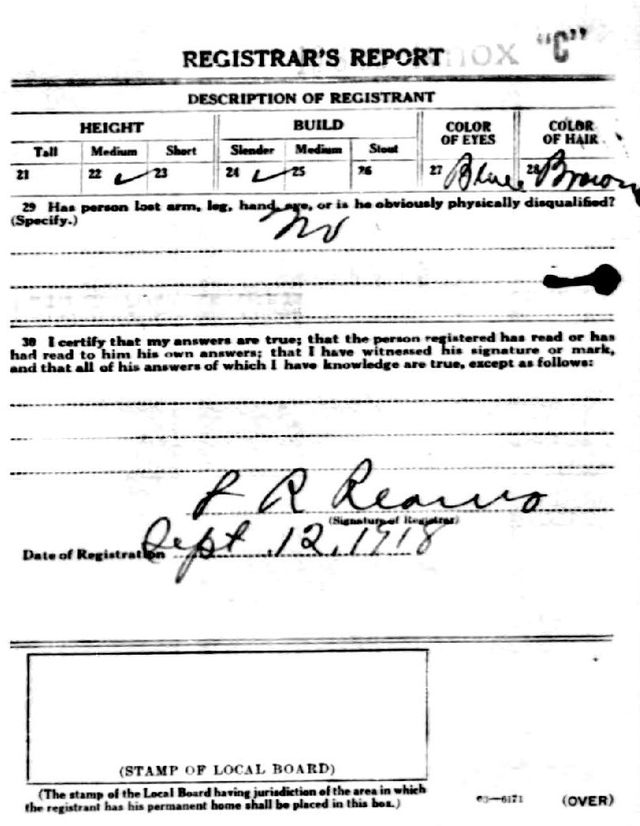 "C"
REGISTRAR'S REPORT
DESCRIPTION OF REGISTRANT
HEIGHT BUILD COLOR OF EYES COLOR OF HAIR
Tall Medium Short Slender Medium Stout
21 22 ✓ 23 24 ✓ 25 26 27 Blue 28 Brown
29 Has person lost arm, leg, hand, eye, or is he obviously physically disqualified?
(Specify.) No
30 I certify that my answers are true; that the person registered has read or has
had read to him his own answers; that I have witnessed his signature or mark,
and that all of his answers of which I have knowledge are true, except as follows:
R
(Signature of Registrar)
Date of Registration Sept 12, 1918
(STAMP OF LOCAL BOARD)
(The stamp of the Local Board having jurisdiction of the area in which
the registrant has his permanent home shall be placed in this box.)
03—6171 (OVER)